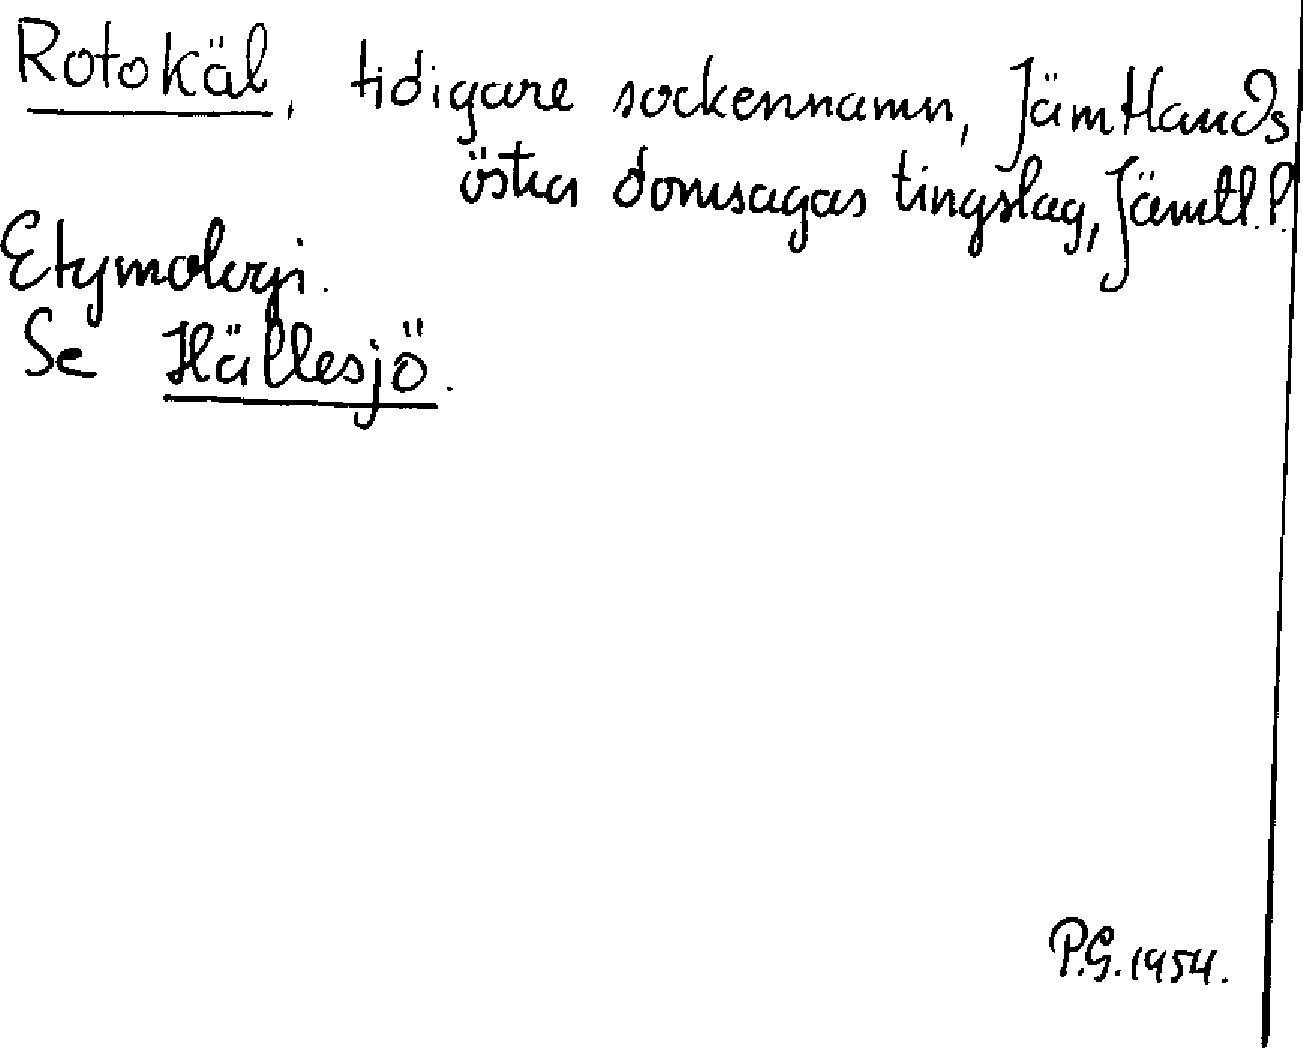 Rotokäl, tidigare sockennamn, Jämtlands
östra domsagas tingslag, Jämtl. l.
Etymologi.
Se Hällesjö.
P.G. 1954.